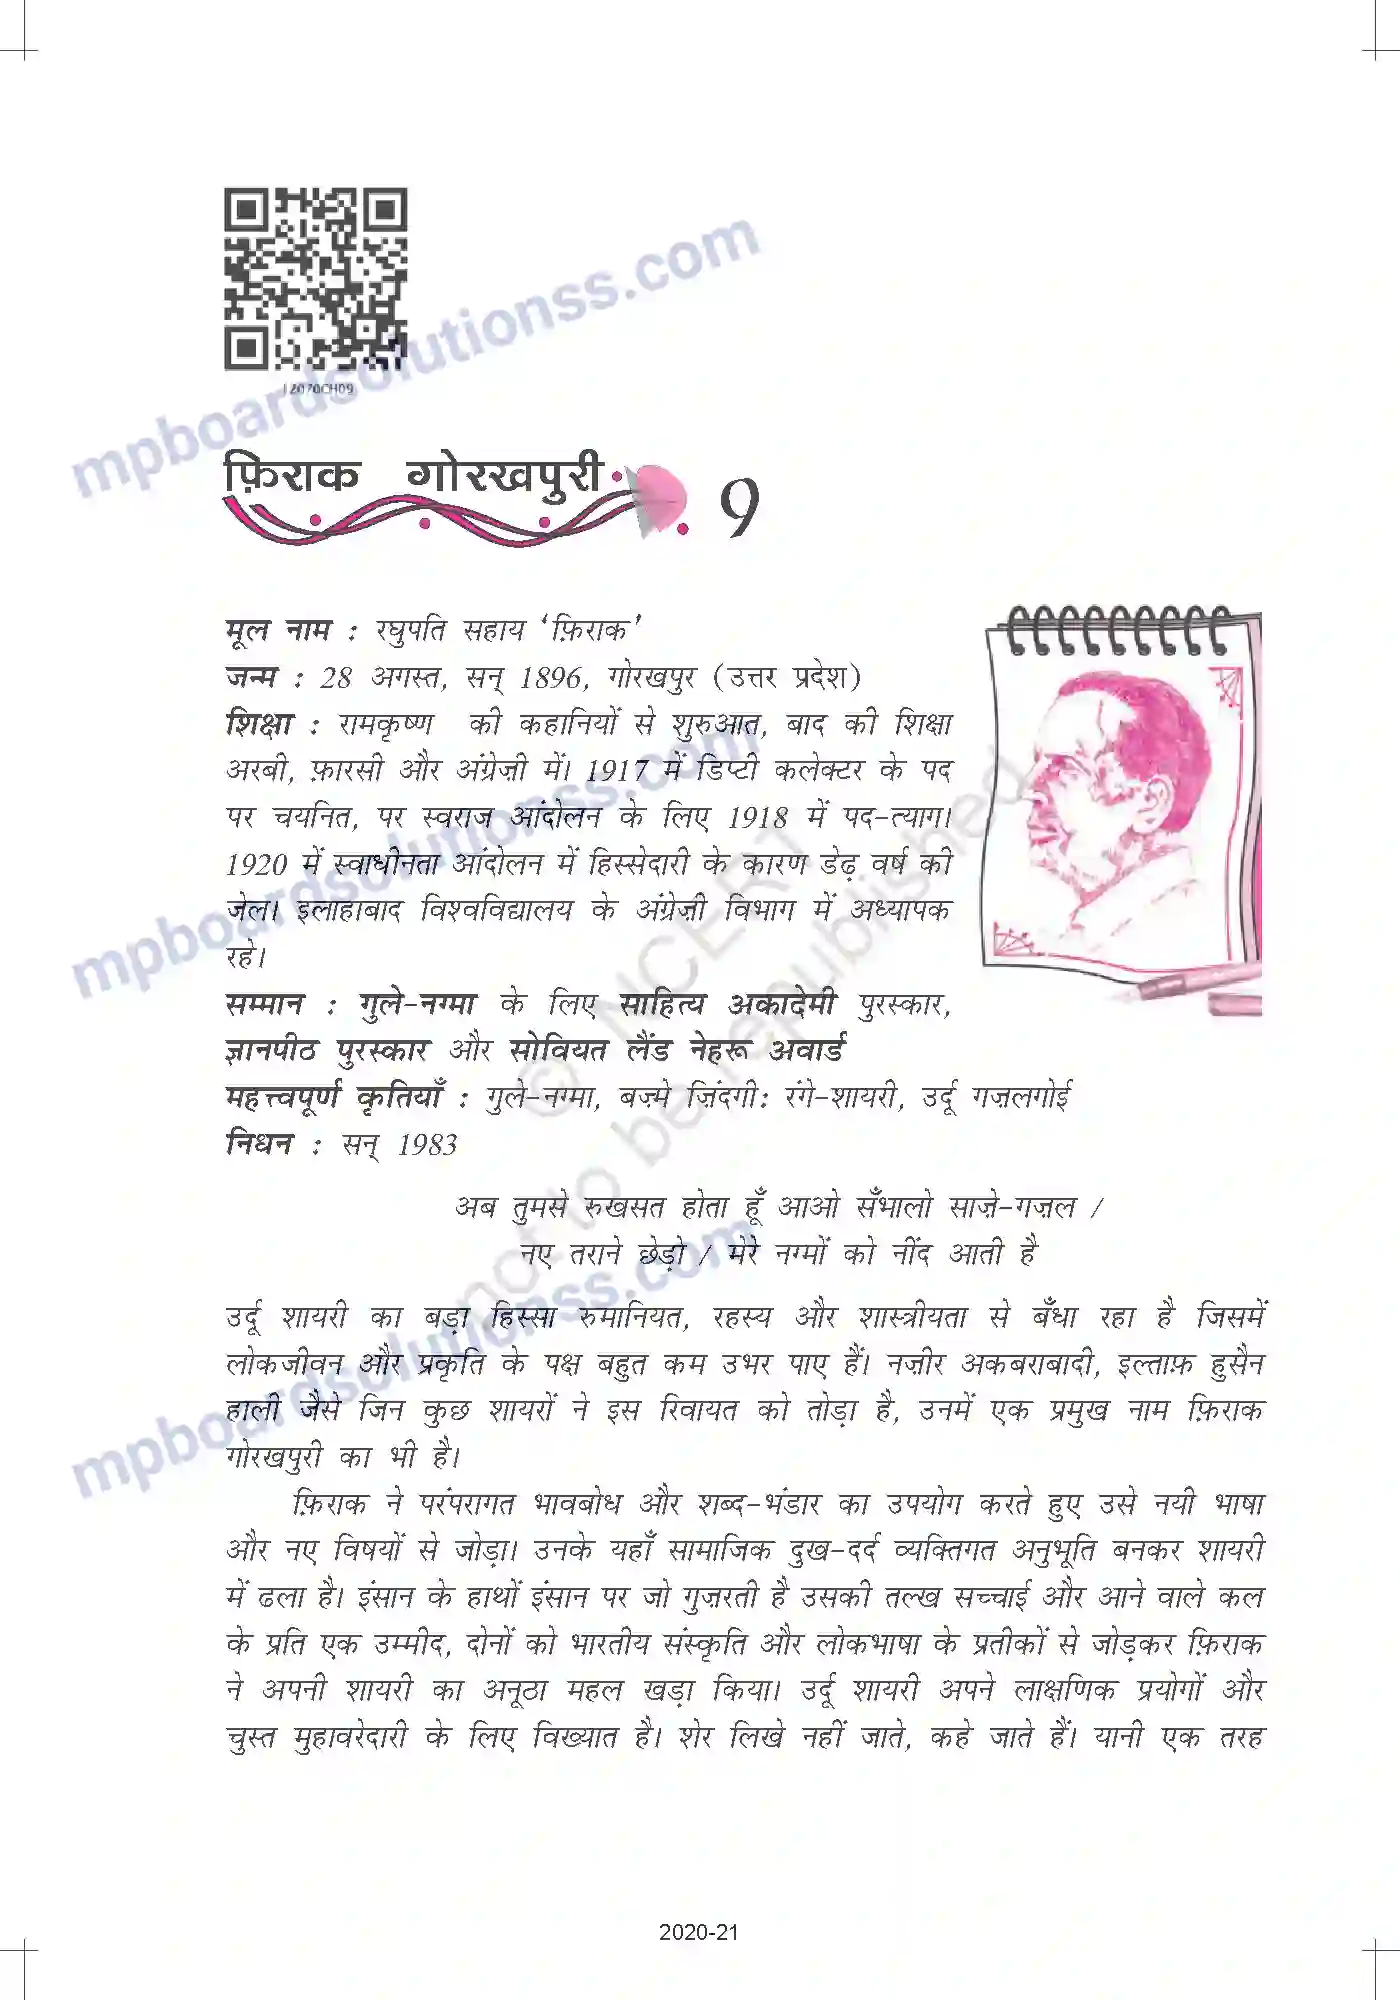 12070CH09
फ़िराक गोरखपुरी
9
मूल नाम : रघुपति सहाय ‘फ़िराक’
जन्म : 28 अगस्त, सन् 1896, गोरखपुर (उत्तर प्रदेश)
शिक्षा : रामकृष्ण की कहानियों से शुरुआत, बाद की शिक्षा
अरबी, फ़ारसी और अंग्रेज़ी में। 1917 में डिप्टी कलेक्टर के पद
पर चयनित, पर स्वराज आंदोलन के लिए 1918 में पद-त्याग।
1920 में स्वाधीनता आंदोलन में हिस्सेदारी के कारण डेढ़ वर्ष की
जेल। इलाहाबाद विश्वविद्यालय के अंग्रेज़ी विभाग में अध्यापक
रहे।
सम्मान : गुले-नग्मा के लिए साहित्य अकादेमी पुरस्कार,
ज्ञानपीठ पुरस्कार और सोवियत लैंड नेहरू अवार्ड
महत्त्वपूर्ण कृतियाँ : गुले-नग्मा, बज़्मे ज़िंदगी: रंगे-शायरी, उर्दू गज़लगोई
निधन : सन् 1983
अब तुमसे रुखसत होता हूँ आओ सँभालो साज़े-गज़ल /
नए तराने छेड़ो / मेरे नग्मों को नींद आती है
उर्दू शायरी का बड़ा हिस्सा रुमानियत, रहस्य और शास्त्रीयता से बँधा रहा है जिसमें
लोकजीवन और प्रकृति के पक्ष बहुत कम उभर पाए हैं। नज़ीर अकबराबादी, इल्ताफ़ हुसैन
हाली जैसे जिन कुछ शायरों ने इस रिवायत को तोड़ा है, उनमें एक प्रमुख नाम फ़िराक
गोरखपुरी का भी है।
फ़िराक ने परंपरागत भावबोध और शब्द-भंडार का उपयोग करते हुए उसे नयी भाषा
और नए विषयों से जोड़ा। उनके यहाँ सामाजिक दुख-दर्द व्यक्तिगत अनुभूति बनकर शायरी
में ढला है। इंसान के हाथों इंसान पर जो गुज़रती है उसकी तल्ख सच्चाई और आने वाले कल
के प्रति एक उम्मीद, दोनों को भारतीय संस्कृति और लोकभाषा के प्रतीकों से जोड़कर फ़िराक
ने अपनी शायरी का अनूठा महल खड़ा किया। उर्दू शायरी अपने लाक्षणिक प्रयोगों और
चुस्त मुहावरेदारी के लिए विख्यात है। शेर लिखे नहीं जाते, कहे जाते हैं। यानी एक तरह
2020-21
mpboardsolutionss.com
mpboardsolutionss.com
mpboardsolutionss.com
© NCERT
not to be republished